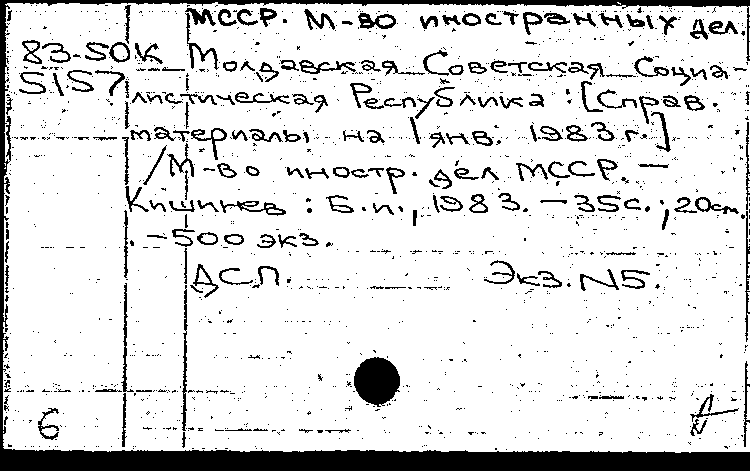 МССР. М-во иностранных дел.
83-50К Молдавская Советская Социа-
5157 листическая Республика : [Справ.
материалы на 1 янв. 1983 г.]
/ М-во иностр. дел МССР. —
Кишинев : Б.и., 1983. — 35с. ; 20см.
. — 500 экз.
ДСП. Экз. N5.
6